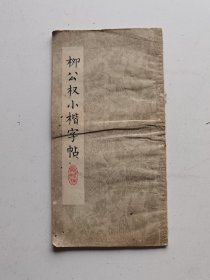 柳公权小楷字帖